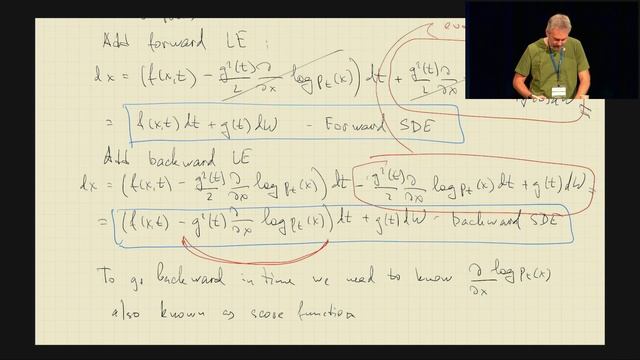 Add forward LE :
dx = (f(x,t) - g²(t)/2 ∂/∂x log p_t(x)) dt + g²(t)/2 ∂/∂x
= f(x,t) dt + g(t) dW - Forward SDE
Add backward LE
dx = (f(x,t) - g²(t)/2 ∂/∂x log p_t(x)) dt - g²(t)/2 ∂/∂x log p_t(x) dt + g(t) dW =
= (f(x,t) - g²(t) ∂/∂x log p_t(x)) dt + g(t) dW - backward SDE
To go backward in time we need to know ∂/∂x log p_t(x)
also known as score function